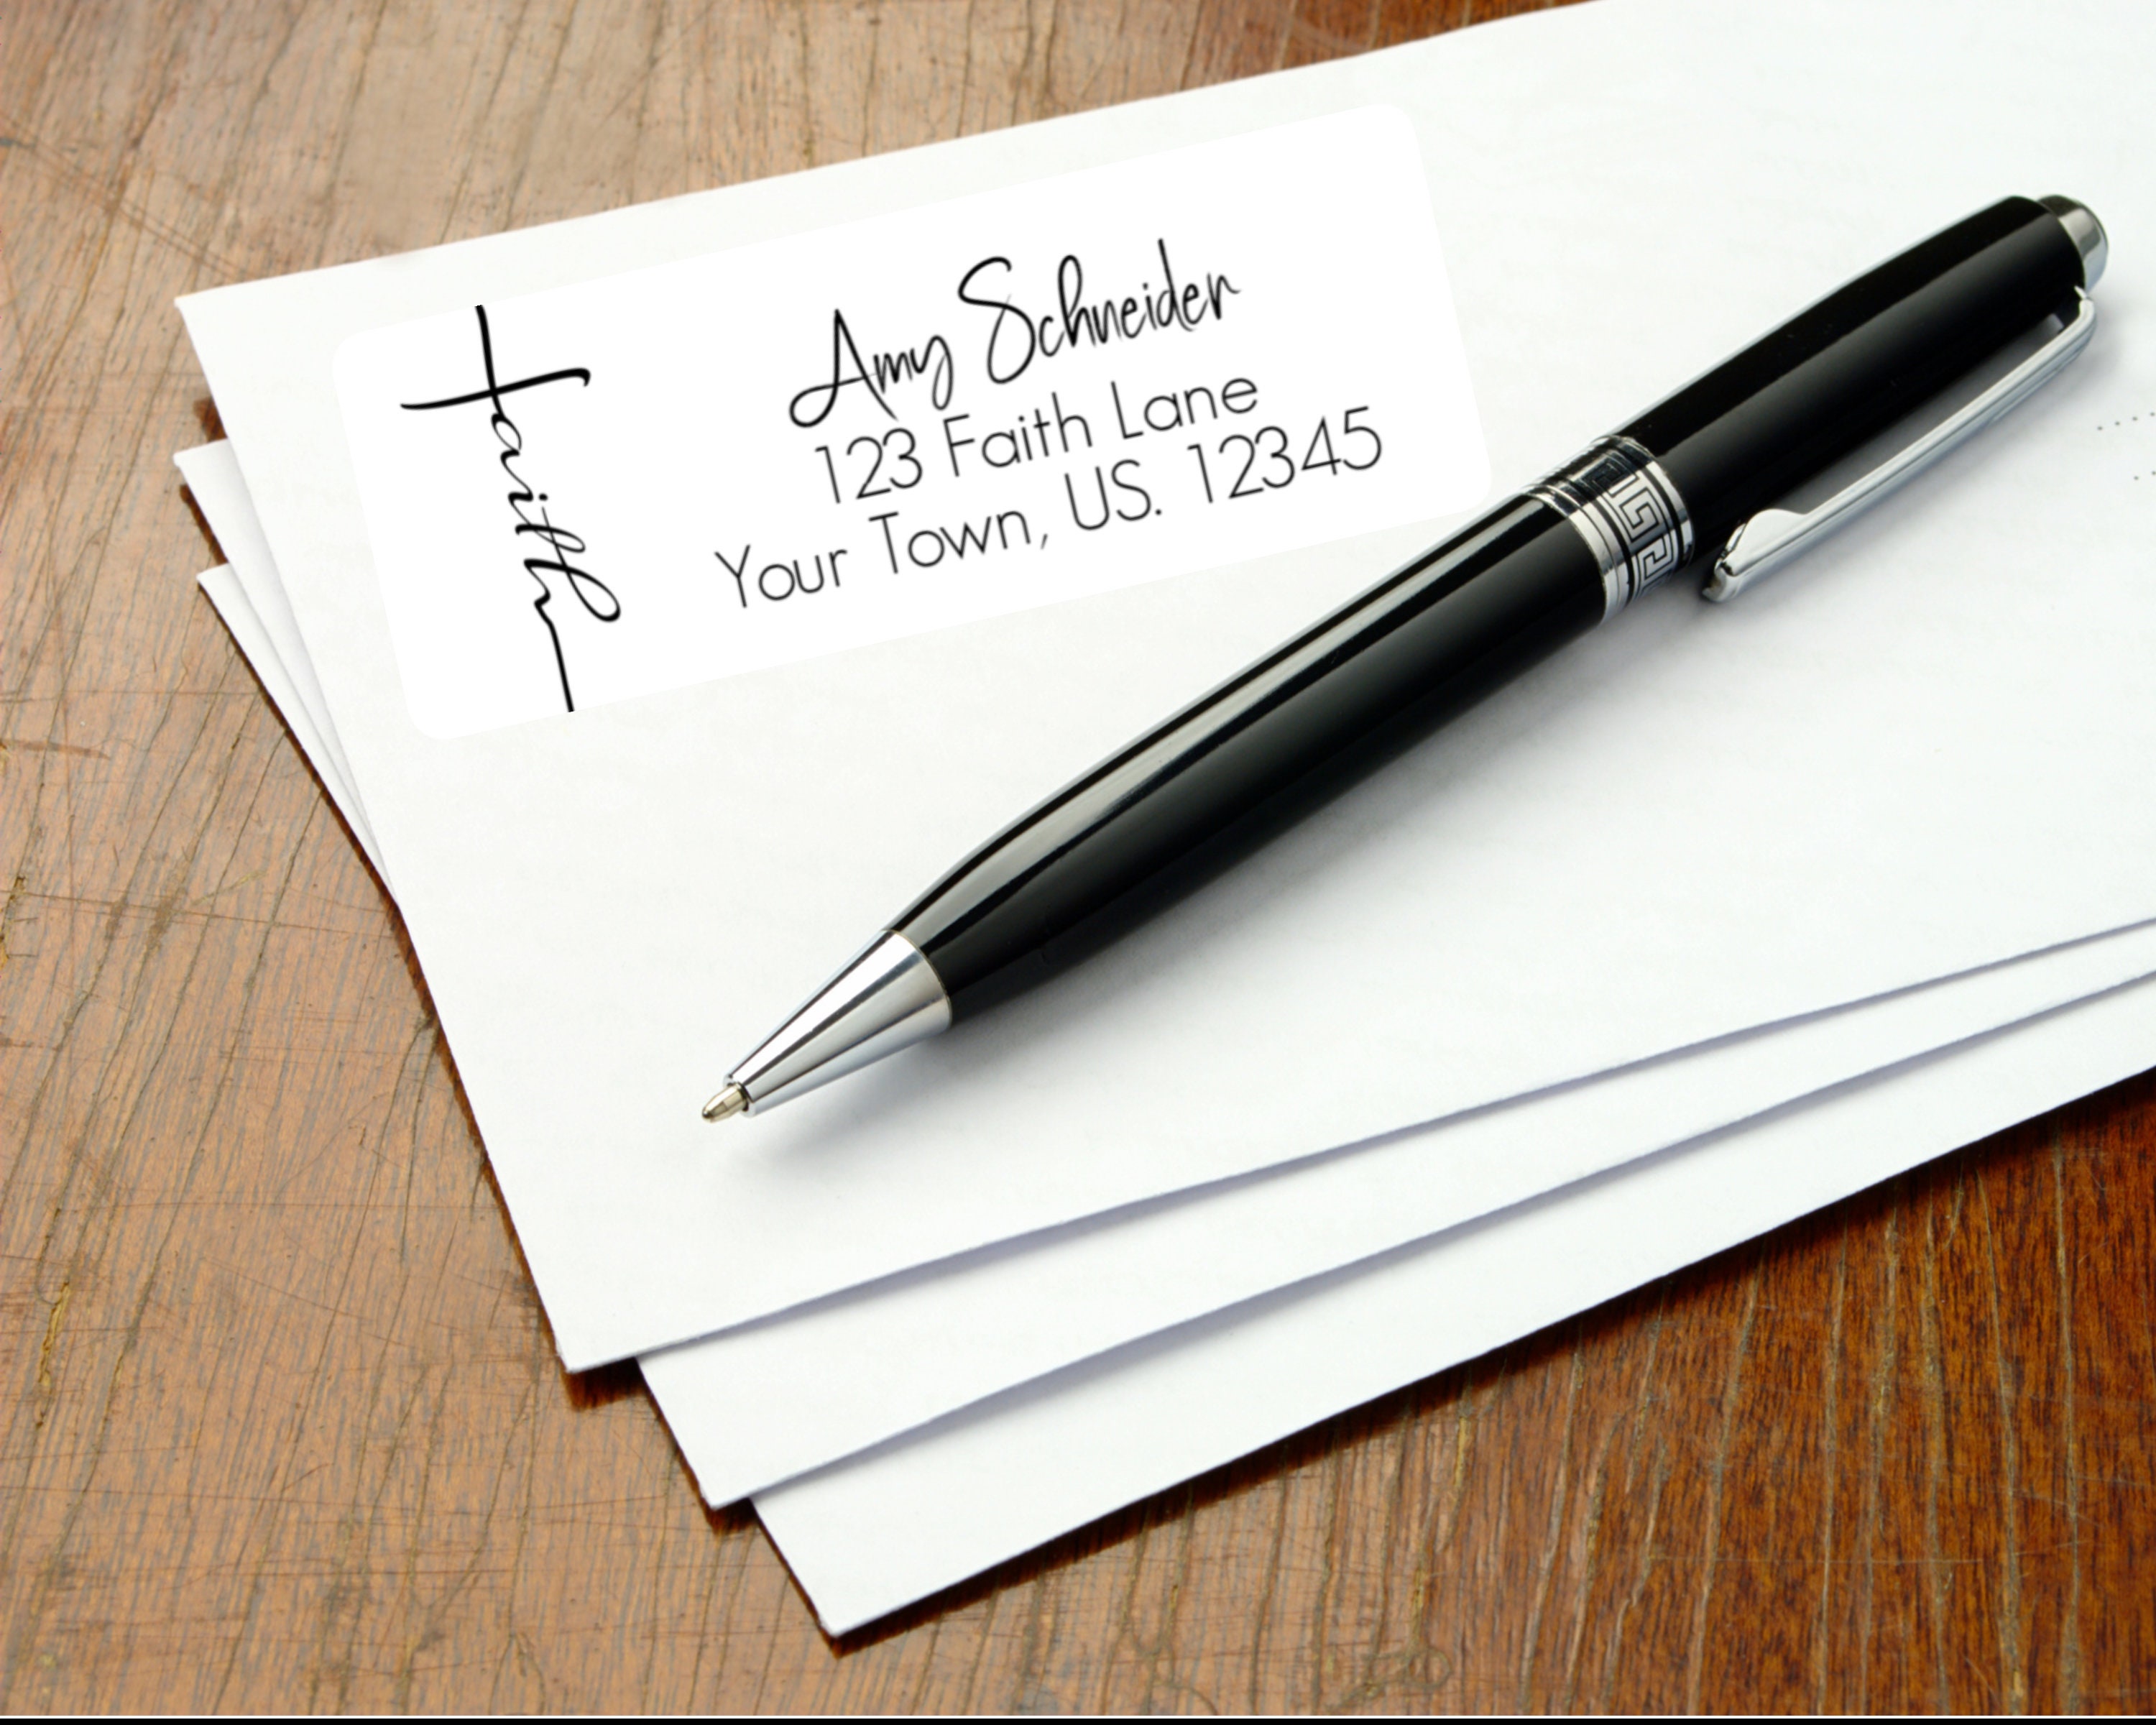 faith
Amy Schneider
123 Faith Lane
Your Town, US. 12345